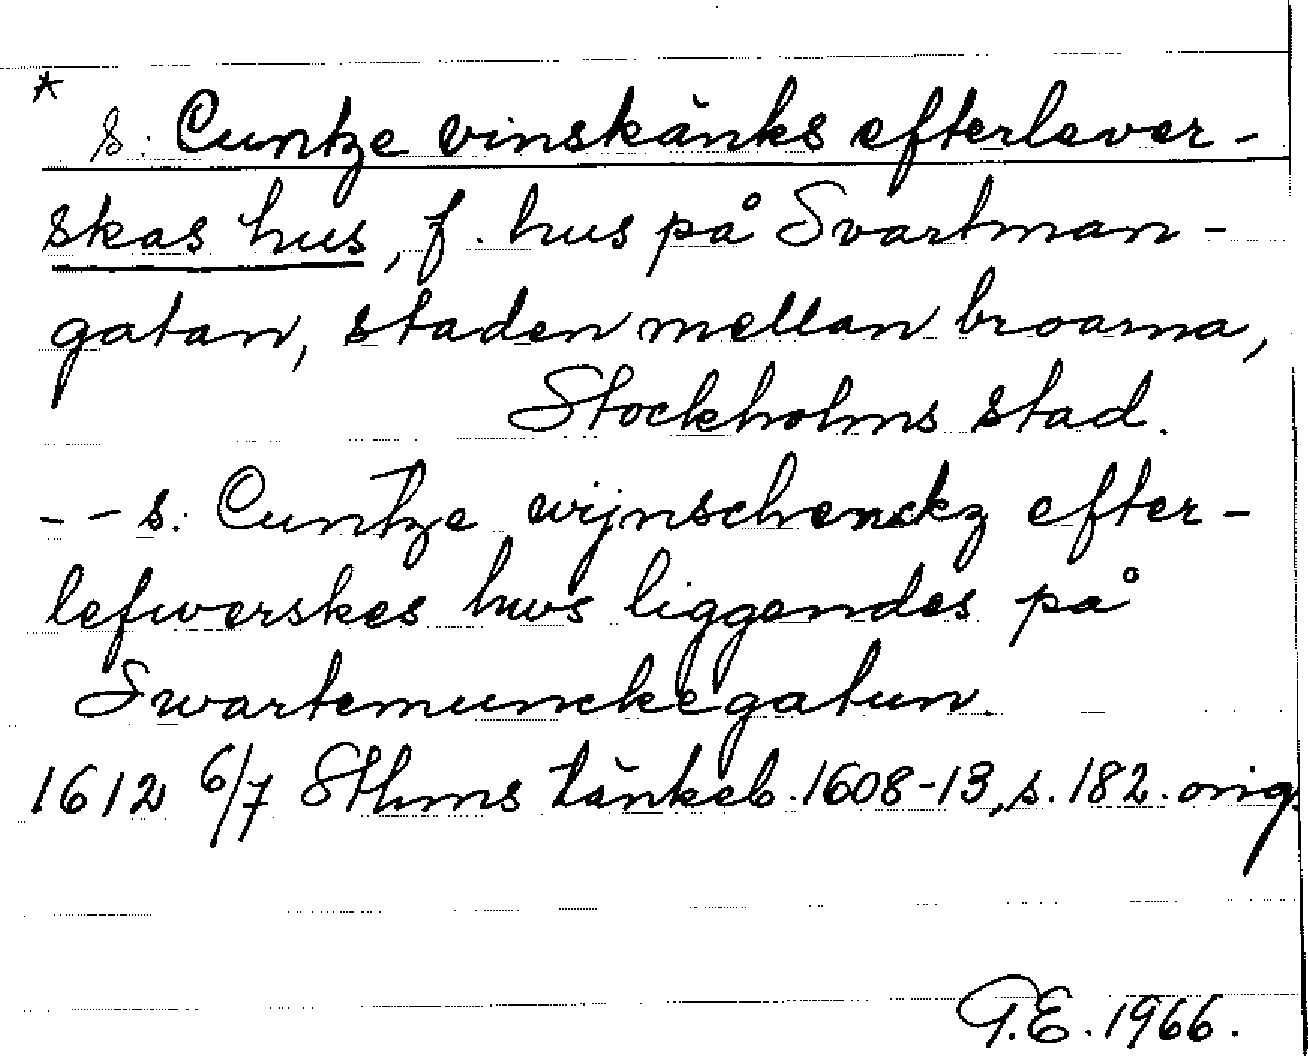 * s. Cuntze vinskänks efterlever-
skas hus, f. hus på Svartman-
gatan, staden mellan broarna,
Stockholms stad.
-- s. Cuntze wijnschenckz efter-
lefwerskes hws liggendes på
Swartemunckegatun.
1612 6/7 Sthms tänkeb. 1608-13, s. 182. orig.
G.E. 1966.